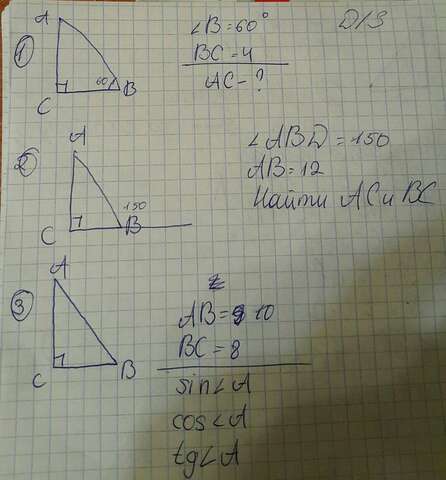 Д/З
①
A
C
60
B
∠B=60°
BC=4
AC-?
②
A
C
150
B
∠ABD=150
AB=12
Найти AC и BC
③
A
C
B
AB=10
BC=8
sin∠A
cos∠A
tg∠A